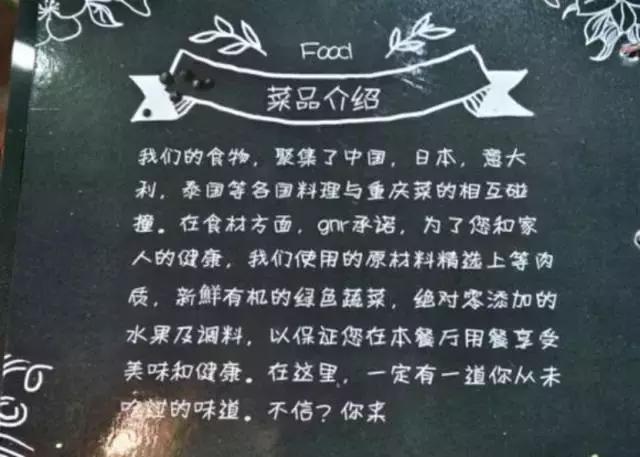 Food
菜品介绍
我们的食物，聚集了中国，日本，意大
利，泰国等各国料理与重庆菜的相互碰
撞。在食材方面，gnr承诺，为了您和家
人的健康，我们使用的原材料精选上等肉
质，新鲜有机的绿色蔬菜，绝对零添加的
水果及调料，以保证您在本餐厅用餐享受
美味和健康。在这里，一定有一道你从未
啥过的味道。不信？你来